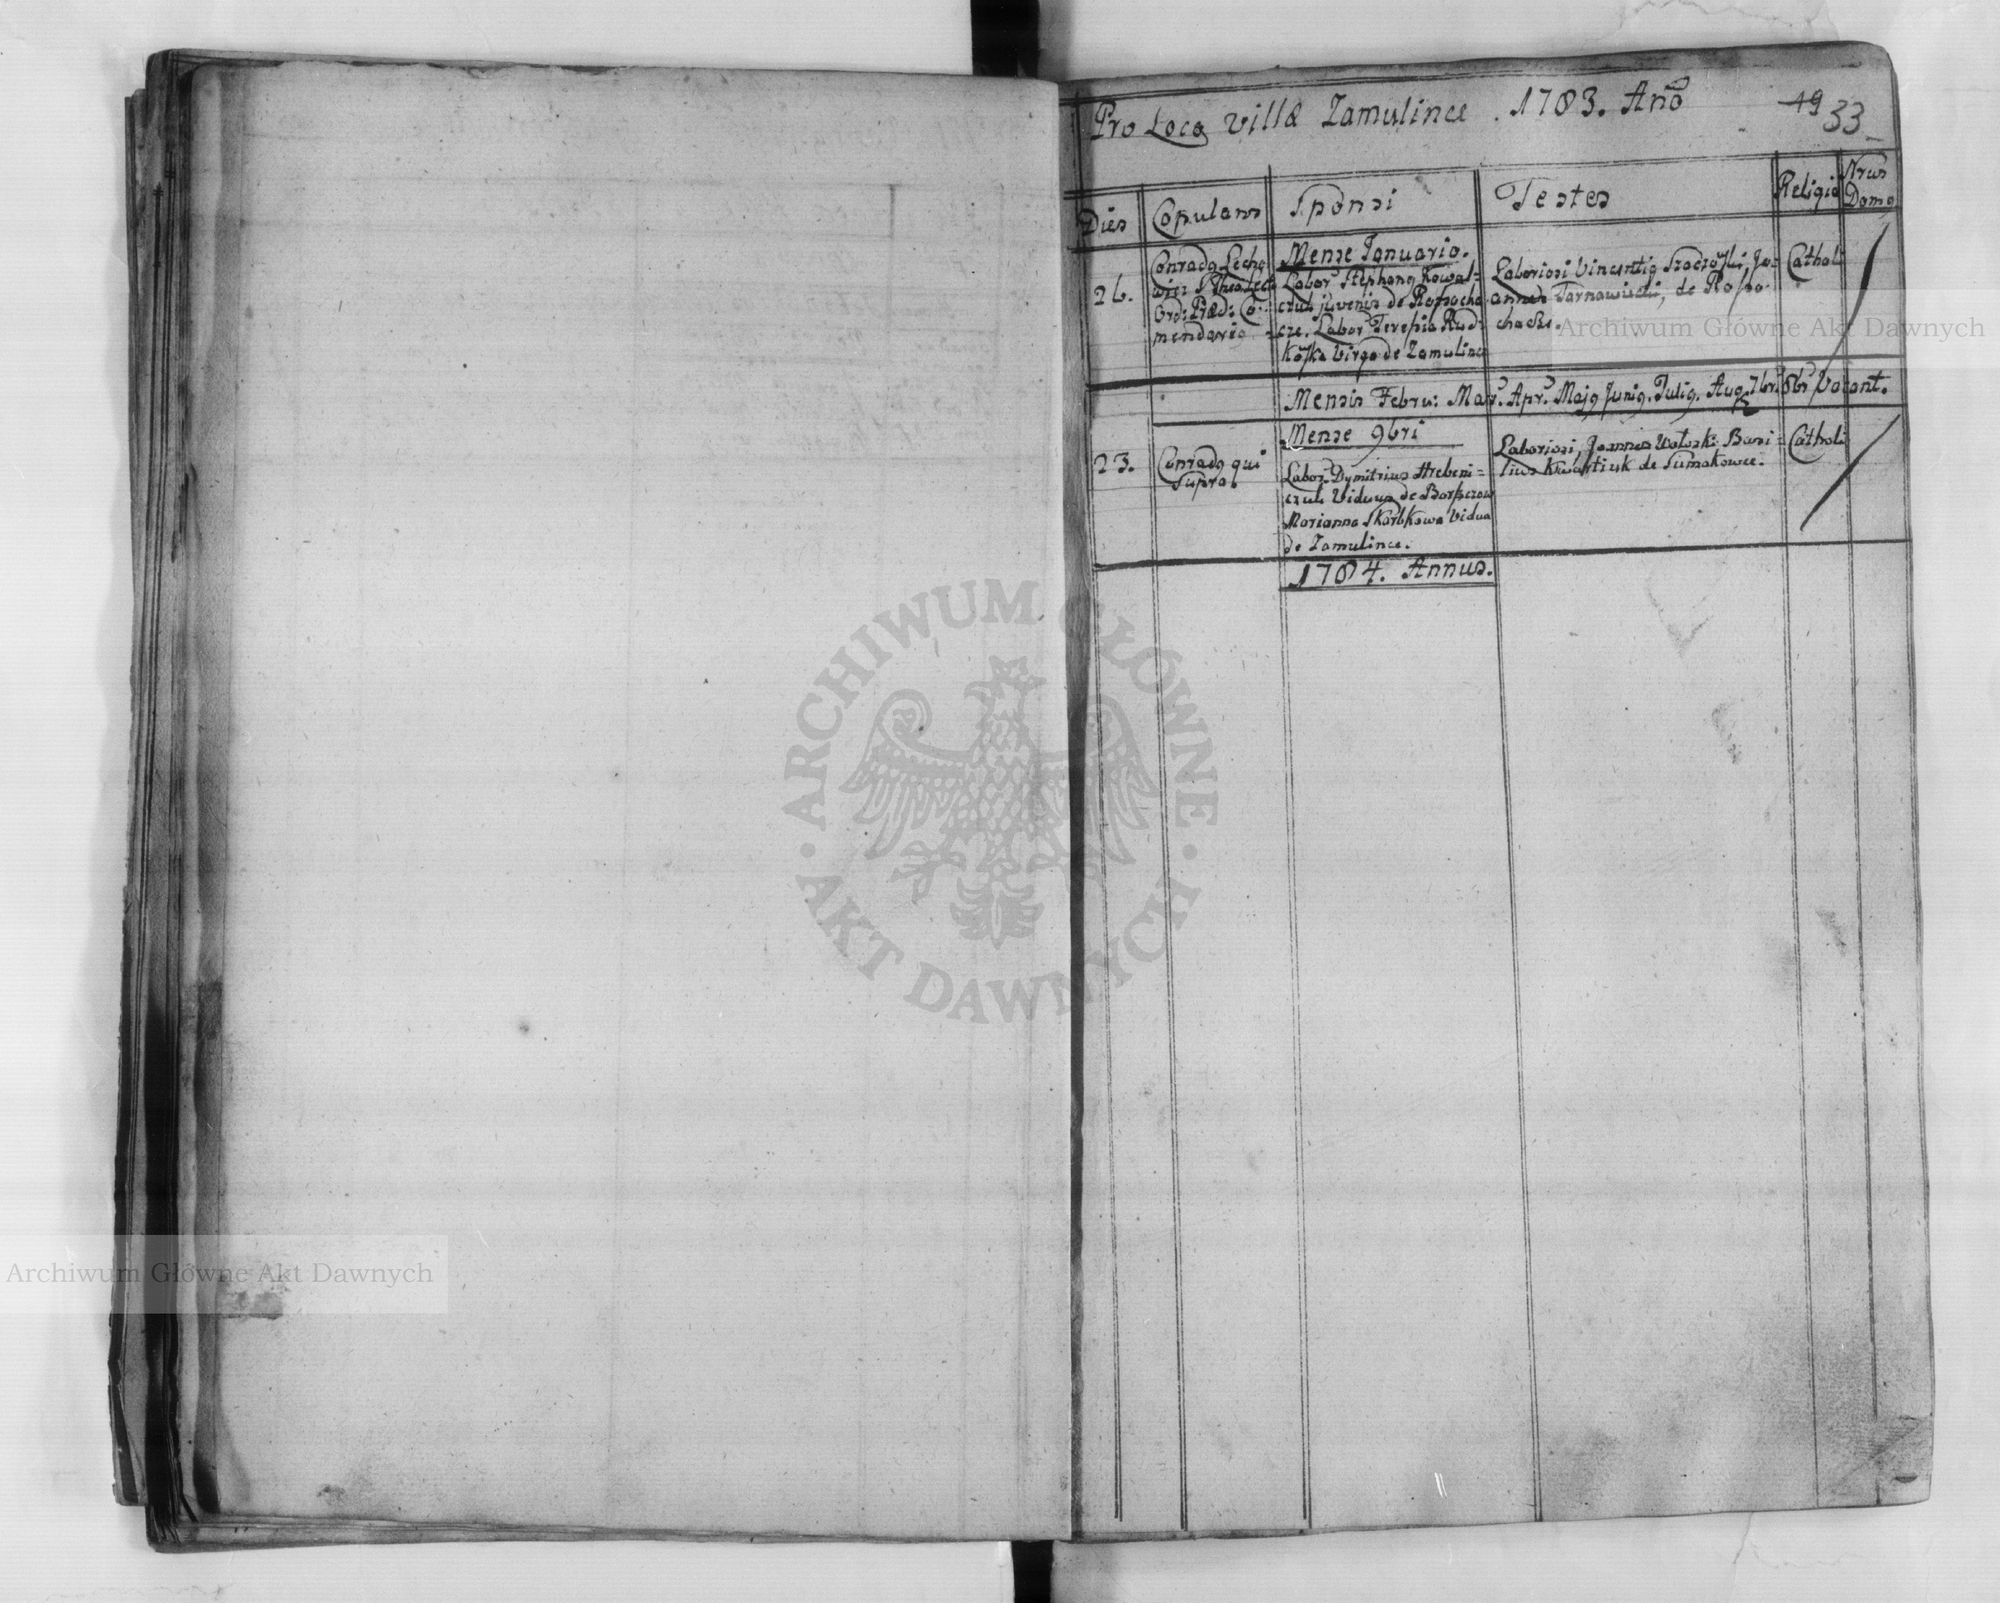 Pro Loco villæ Zamulince . 1783. Año
49 33
Dies
Copulans
Sponsi
Testes
Religio
Nrus
Domo
26.
Conrado Lecho
wicz S Thea Lect
Ord: Præd: Co-
mendario
Mense Januario.
Labor Stephano Kowal=
czuk juvenis de Rossocha
cze. Labor Teresia Rud=
kowska Virgo de Zamulince
Laboriosi Vincentio Jo=
annes Tarnawiecki, de Roso-
chacze.
Cathol
Mensis Febru: Mar. Apr. Majo Junio. Julio. Aug. 7bri 8bri Vacant.
23.
Conrado qui
Supra
Mense 9bri
Labor Dymitrius Hrebeni=
czuk Viduus de Borszczow
Marianna Skorbkowa Vidua
de Zamulince.
Laboriosi, Joannes Woloski Basi=
lius Kwartiuk de Tumakowce.
Catholi
1784. Annus.
ARCHIWUM GŁÓWNE
AKT DAWNYCH
Archiwum Główne Akt Dawnych
Archiwum Główne Akt Dawnych